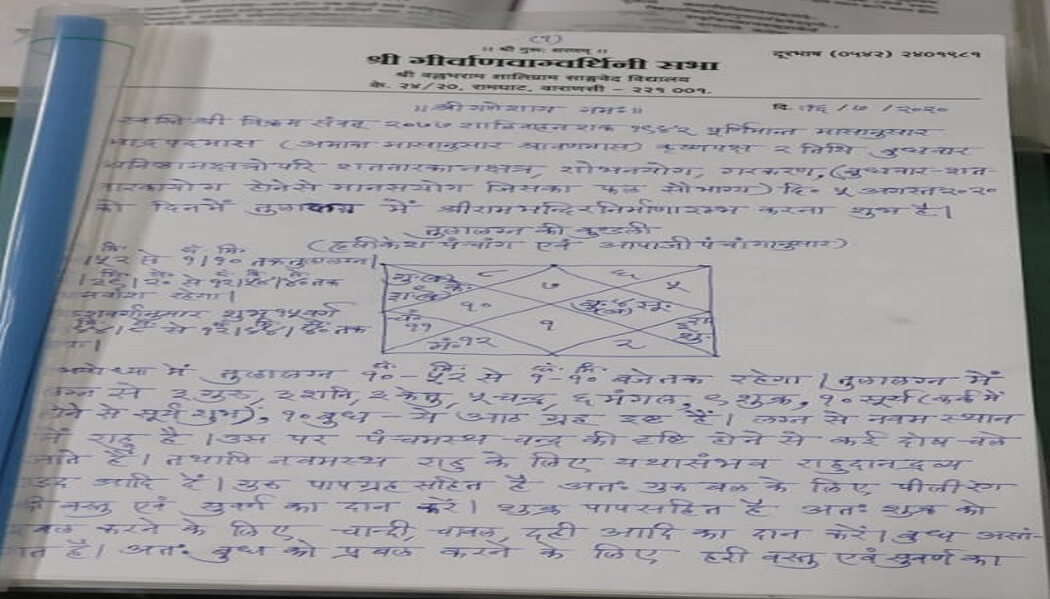 (१)
।। श्री गुरुः शरणम् ।।
दूरभाष (०५४२) २४०१९८१
श्री गीर्वाणवाग्वर्धिनी सभा
श्री वल्लभराम शालिग्राम साङ्गवेद विद्यालय
के. २४/२०, रामघाट, वाराणसी – २२१ ००१.
।। श्री गणेशाय नमः ।।
दि. १६/७/२०२०
स्वस्ति श्री विक्रम संवत् २०७७ शालिवाहन शक १९४२ पूर्णिमान्त मासानुसार
भाद्रपदमास (अमान्त मासानुसार श्रावणमास) कृष्णपक्ष २ तिथि बुधवार
धनिष्ठानक्षत्रोपरि शततारकानक्षत्र, शोभनयोग, गरकरण, (बुधवार-शत
तारकायोग होनेसे मानसयोग जिसका फल सौभाग्य) दि॰ ५ अगस्त २०२०
को दिनमें तुलालग्न में श्रीराममन्दिरनिर्माणारम्भ करना शुभ है।
तुलालग्न की कुण्डली
(हृषीकेश पंचांग एवं आपाजी पंचांगानुसार)
।५२ से १।१० तक तुलालग्न।
से १२।५४।४० तक
नवांश रहेगा।
शवर्गानुसार शुभ १५ वर्ग
से १२।५४।४० तक
८ ७ ६ ५
के.
१० ४ सू.
११ १
मं. १२ २ शु.
अयोध्या में तुलालग्न १०-५२ से १-१० बजे तक रहेगा। तुलालग्न में
लग्न से ३ गुरु, २ शनि, ३ केतु, ५ चन्द्र, ६ मंगल, ९ शुक्र, १० सूर्य (कर्क में
होने से सूर्य शुभ), १० बुध – ये आठ ग्रह इष्ट हैं। लग्न से नवम स्थान
में राहु है। उस पर पंचमस्थ चन्द्र की दृष्टि होने से कई दोष बल
जाते हैं। तथापि नवमस्थ राहु के लिए यथासंभव राहुदानद्रव्य
उड़द आदि दें। गुरु पापग्रह सहित है अतः गुरु बल के लिए पीली रंग
की वस्तु एवं सुवर्ण का दान करें। शुक्र पापसहित है अतः शुक्र को
प्रबल करने के लिए चान्दी, चावल, दही आदि का दान करें। बुध अस्तं-
गत है। अतः बुध को प्रबल करने के लिए हरी वस्तु एवं सुवर्ण का